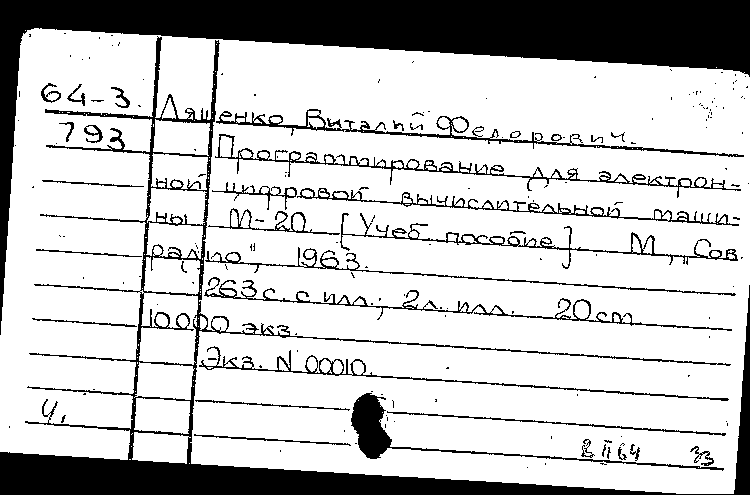 64-3. Ляшенко, Виталий Федорович.
793 Программирование для электрон-
ной цифровой вычислительной маши-
ны М-20. [Учеб. пособие]. М., „Сов.
радио", 1963.
263 с. с илл.; 2 л. илл. 20 cm
10000 экз.
Экз. N 00010.
Ч.
В II 64 33